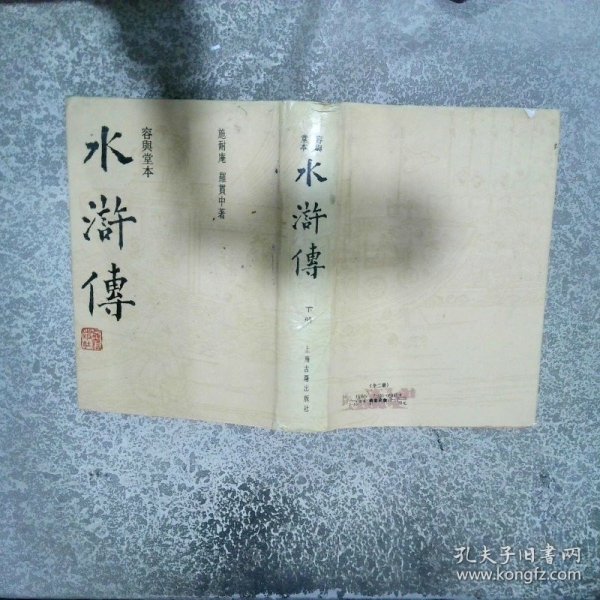 容與堂本
水滸傳
施耐庵 羅貫中著
容與堂本
水滸傳
下册
上海古籍出版社
(全二册)
孔夫子旧书网
www.kongfz.com